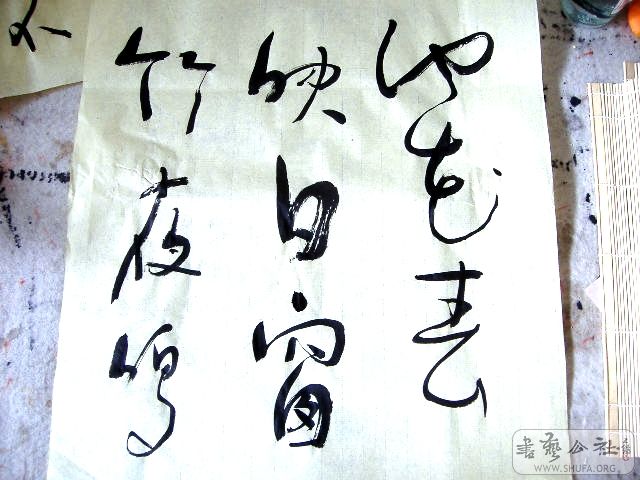 池花春
映日窗
竹夜鳴
書藝公社
WWW.SHUFA.ORG